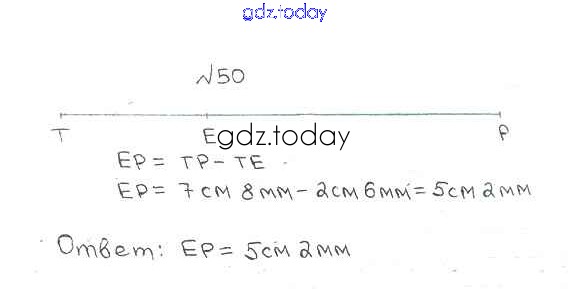 gdz.today
№50
T E P
gdz.today
EP = TP - TE
EP = 7 см 8 мм - 2 см 6 мм = 5 см 2 мм
Ответ: EP = 5 см 2 мм